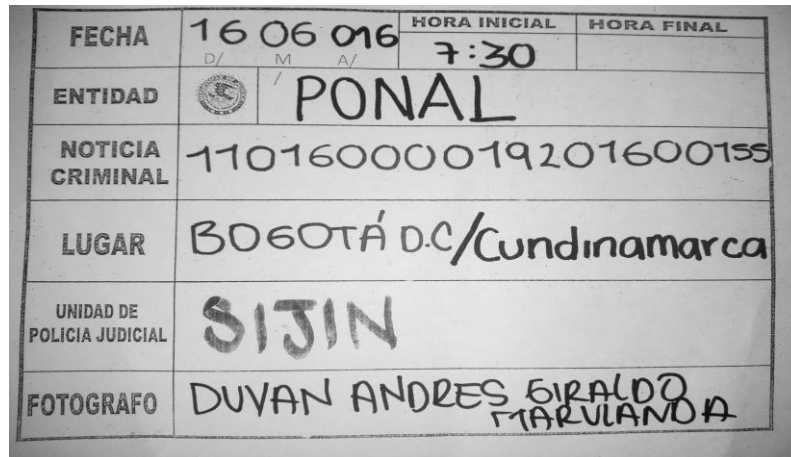 FECHA 16 06 016 HORA INICIAL HORA FINAL
D/ M A/ 7:30
ENTIDAD PONAL
NOTICIA CRIMINAL 110160000019201600155
LUGAR BOGOTÁ D.C/Cundinamarca
UNIDAD DE POLICIA JUDICIAL SIJIN
FOTOGRAFO DUVAN ANDRES GIRALDO
MARULANDA